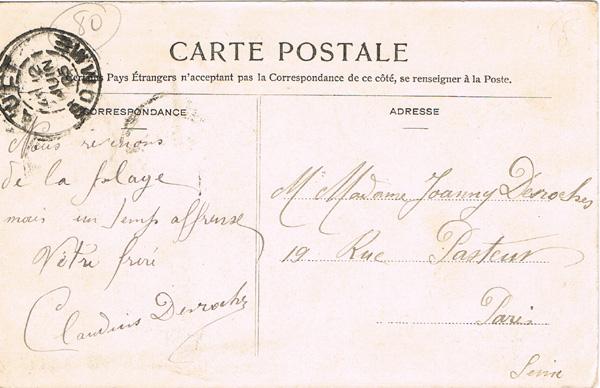 80
CARTE POSTALE
Pays Étrangers n'acceptant pas la Correspondance de ce côté, se renseigner à la Poste.
CORRESPONDANCE
ADRESSE
Nous revenons
de la plage
mais un temp affreuse
Votre frere
Claudius Desroches
Mr Madame Joanny Desroches
19 Rue Pasteur
Paris
Seine